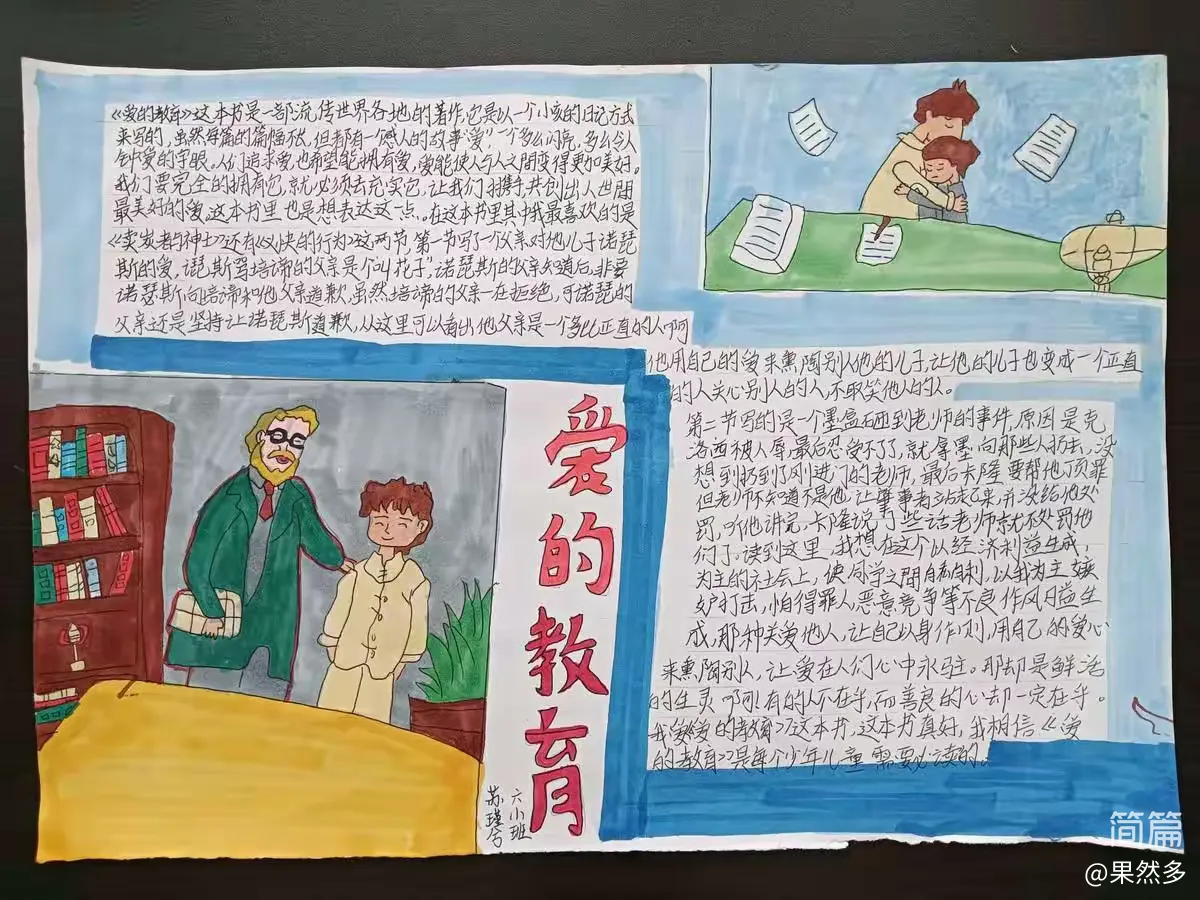 《爱的教育》这本书是一部流传世界各地的著作,它是以一个小孩的日记方式
来写的,虽然每篇的篇幅不长,但都有一个感人的故事“爱”一个多么闪亮,多么令人
钟爱的字眼,人们追求爱,也希望能拥有爱,爱能使人与人之间变得更加美好。
我们要完全的拥有它,就必须去充实它,让我们携,共创出人世間
最美好的爱,这本书里也是想表达这一点,在这本书里其中我最喜欢的是
《卖炭者与神士》还有《义快的行为》这两节,第一节写了一个父亲对他儿子诺琵
斯的爱,琵斯骂培谛的父亲是个“叫花子”,诺琵斯的父亲知道后,非要
诺琵斯向培谛和他父亲道歉,虽然培谛的父亲一在拒绝,可诺琵的
父亲还是坚持让诺琵斯道歉,从这里可以看出他父亲是一个多么正直的人啊
他用自己的爱来熏陶别人他的儿子,让他的儿子也变成一个正直
的人关心别人的人,不取笑他人的人。
第二节写的是一个墨盒砸到老师的事件,原因是克
洛西被人辱,最后忍受不了了,就拿墨向那些人扔去,没
想到扔到了刚进门的老师,最后卡隆要帮他顶罪
但老师不知道不是他,让肇事者站起来,并没给他处
罚,听他讲完,卡隆说了些话老师就不处罚他
们了。读到这里,我想在这个以经济利益生成,
为主的社会上,使同学之間自私自利,以我为主,嫉
妒打击,怕得罪人恶意竞争等不良作风日益生
成,那种关爱他人,让自己以身作则,用自己的爱心
来熏陶别人,让爱在人们心中永驻。那却是鲜活
的生灵啊,有的人不在乎,而善良的心却一定在乎。
我爱《爱的教育》这本书,这本书真好,我相信《爱
的教育》是每个少年儿童需要必读的。
爱的教育
六小班
苏瑾兮
简篇
@果然多